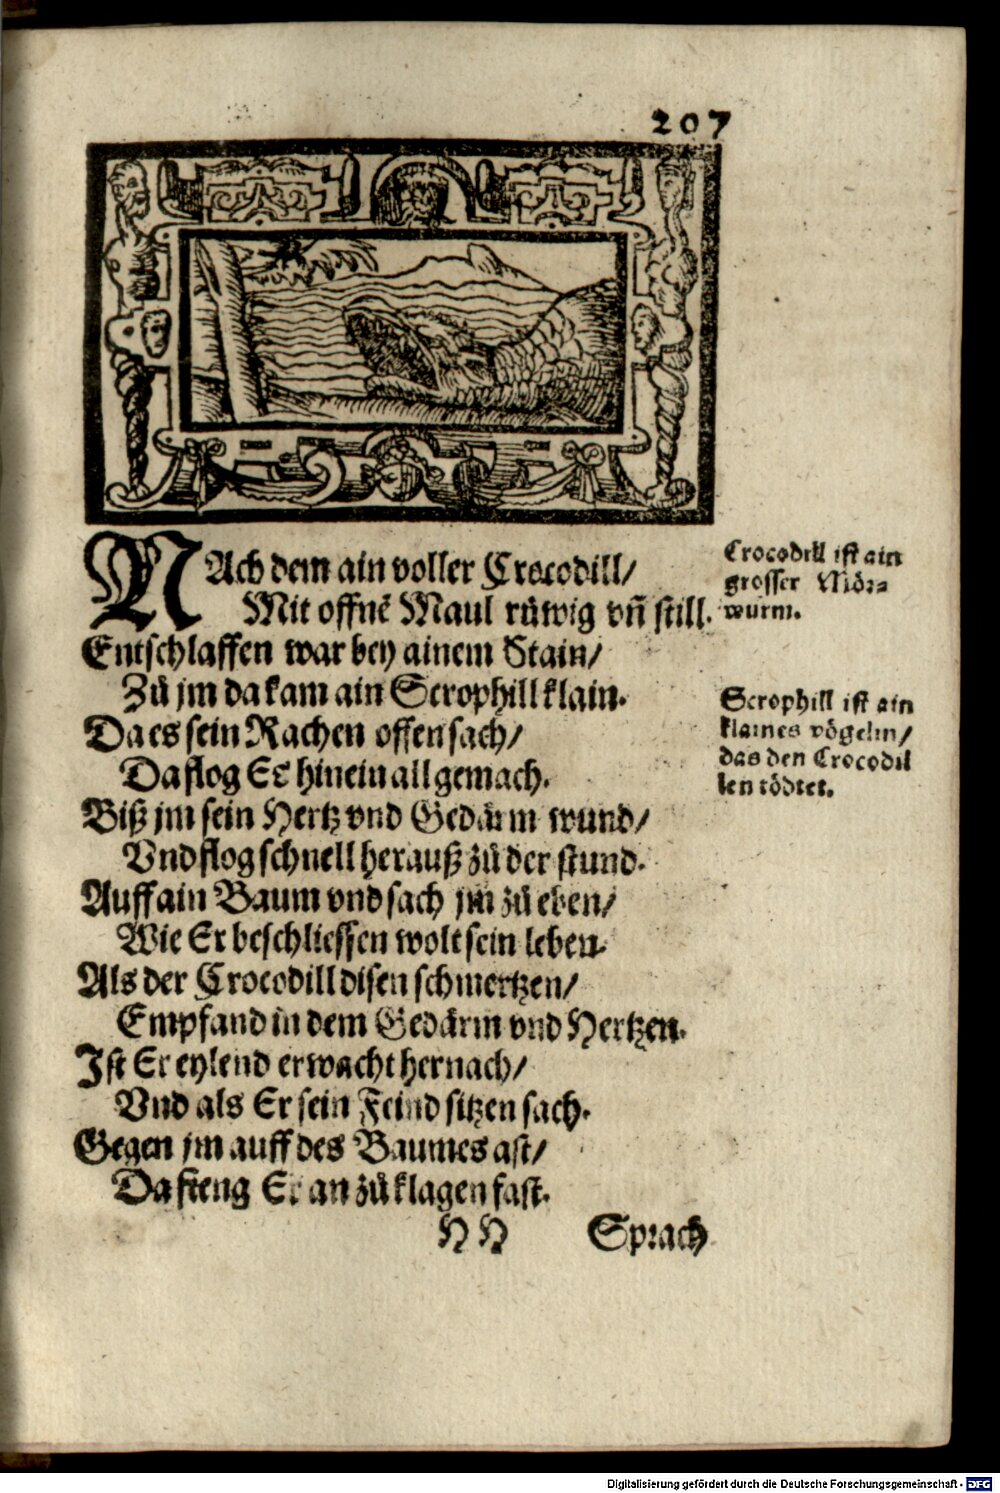 207
NAch dem ain voller Crocodill/
Mit offnē Maul růwig vñ still.
Entschlaffen war bey ainem Stain/
Zů jm da kam ain Scrophill klain.
Da es sein Rachen offen sach/
Da flog Er hinein allgemach.
Biß jm sein Hertz vnd Gedärm wund/
Vnd flog schnell herauß zů der stund.
Auff ain Baum vnd sach jm zů eben/
Wie Er beschliessen wolt sein leben.
Als der Crocodill disen schmertzen/
Empfand in dem Gedärm vnd Hertzen.
Ist Er eylend erwacht hernach/
Vnd als Er sein Feind sitzen sach.
Gegen jm auff des Baumes ast/
Da fieng Er an zů klagen fast.
HH Sprach
Crocodill ist ain
grosser Mör-
wurm.
Scrophill ist ain
klaines vögelin/
das den Crocodil
len tödtet.
Digitalisierung gefördert durch die Deutsche Forschungsgemeinschaft - DFG